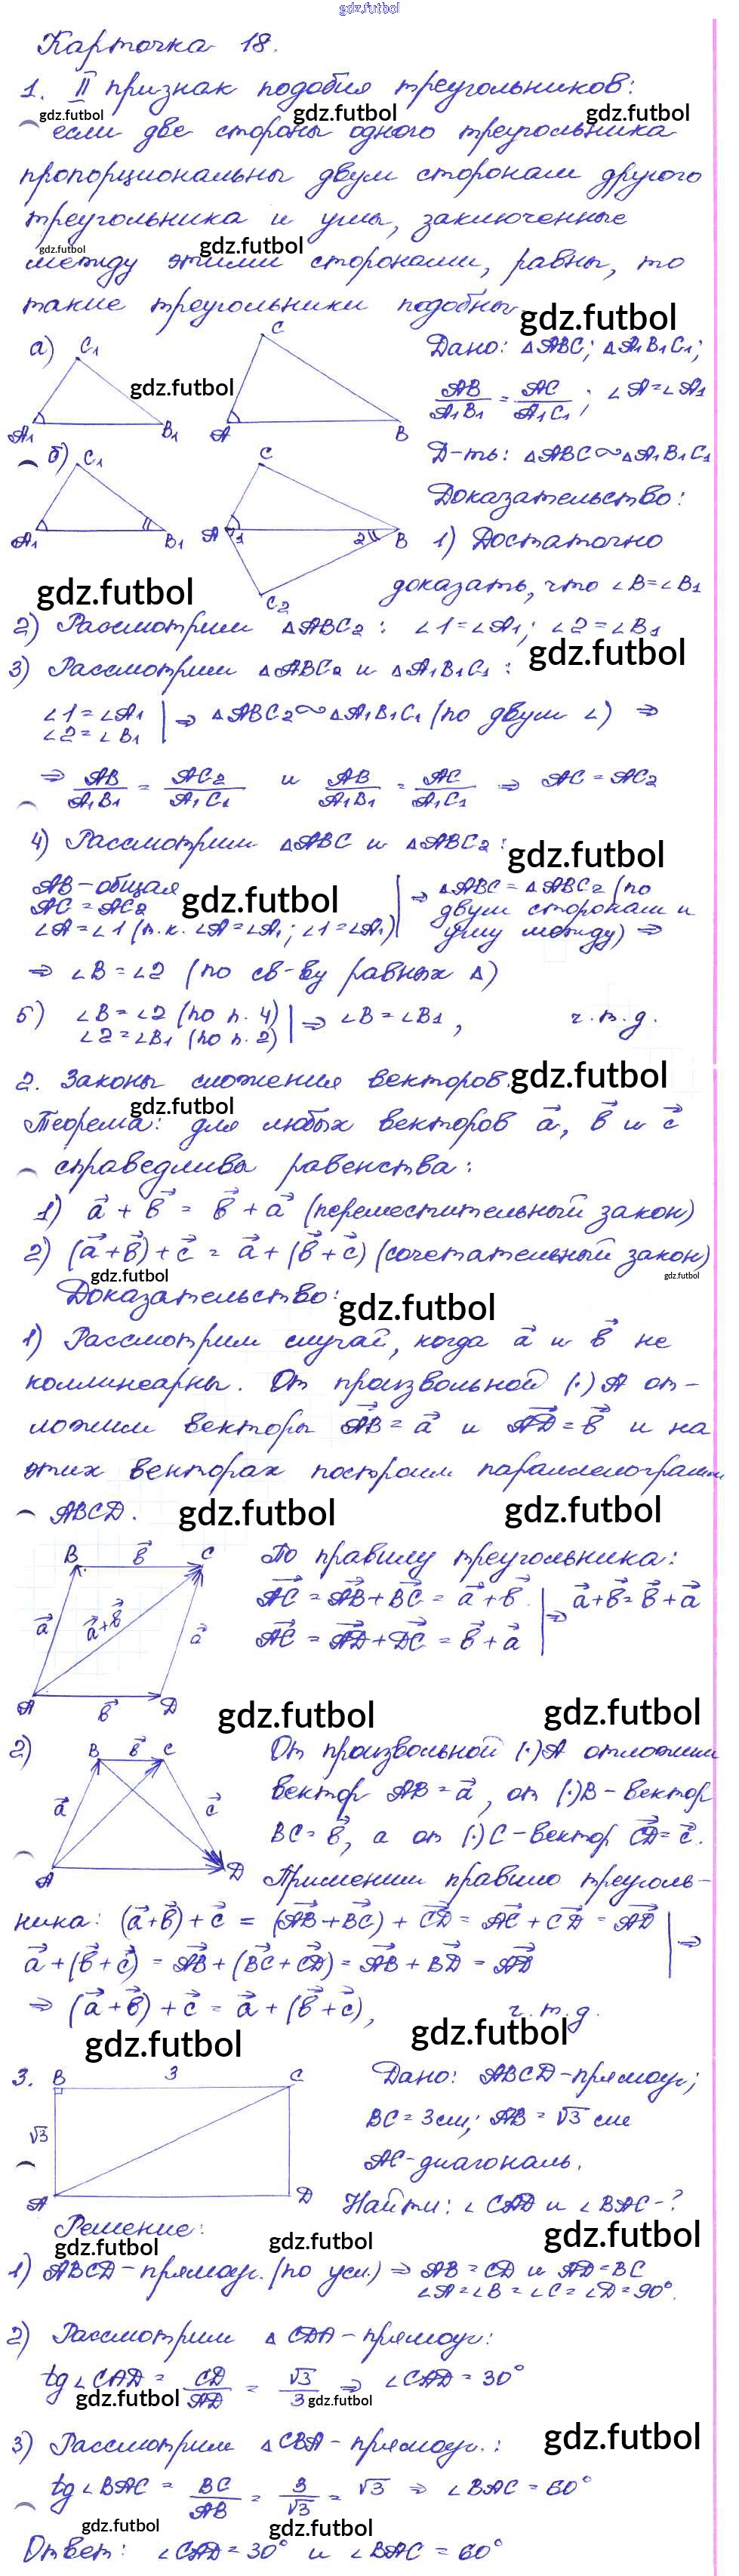 gdz.futbol
Карточка 18.
1. II признак подобия треугольников:
gdz.futbol gdz.futbol gdz.futbol
если две стороны одного треугольника
пропорциональны двум сторонам другого
треугольника и углы, заключенные
gdz.futbol gdz.futbol
между этими сторонами, равны, то
такие треугольники подобны.
gdz.futbol
а) C₁ C A₁ B₁ A B
gdz.futbol
Дано: △ABC; △A₁B₁C₁;
AB/A₁B₁ = AC/A₁C₁; ∠A=∠A₁
Д-ть: △ABC∽△A₁B₁C₁
б) C₁ C A₁ B₁ A 1 2 B C₂
Доказательство:
1) Достаточно
доказать, что ∠B=∠B₁
gdz.futbol
2) Рассмотрим △ABC₂: ∠1=∠A₁; ∠2=∠B₁
gdz.futbol
3) Рассмотрим △ABC₂ и △A₁B₁C₁:
∠1=∠A₁
∠2=∠B₁ | ⇒ △ABC₂∽△A₁B₁C₁ (по двум ∠) ⇒
⇒ AB/A₁B₁ = AC₂/A₁C₁ и AB/A₁B₁ = AC/A₁C₁ ⇒ AC=AC₂
4) Рассмотрим △ABC и △ABC₂:
gdz.futbol
AB-общая
AC=AC₂
gdz.futbol
∠A=∠1 (т.к. ∠A=∠A₁; ∠1=∠A₁) | ⇒ △ABC=△ABC₂ (по
двум сторонам и
углу между) ⇒
⇒ ∠B=∠2 (по св-ву равных △)
5) ∠B=∠2 (по п. 4)
∠2=∠B₁ (по п. 2) | ⇒ ∠B=∠B₁, ч.т.д.
2. Законы сложения векторов.
gdz.futbol
gdz.futbol
Теорема: для любых векторов a⃗, b⃗ и c⃗
справедливы равенства:
1) a⃗ + b⃗ = b⃗ + a⃗ (переместительный закон)
2) (a⃗+b⃗)+c⃗ = a⃗+(b⃗+c⃗) (сочетательный закон)
gdz.futbol gdz.futbol
Доказательство:
gdz.futbol
1) Рассмотрим случай, когда a⃗ и b⃗ не
коллинеарны. От произвольной (·)A от-
ложим векторы AB⃗=a⃗ и AD⃗=b⃗ и на
этих векторах построим параллелограмм
ABCD.
gdz.futbol gdz.futbol
B b⃗ C a⃗ a⃗+b⃗ a⃗ A b⃗ D
По правилу треугольника:
AC⃗ = AB⃗+BC⃗ = a⃗+b⃗
AC⃗ = AD⃗+DC⃗ = b⃗+a⃗ | ⇒ a⃗+b⃗=b⃗+a⃗
gdz.futbol gdz.futbol
2) B b⃗ C a⃗ c⃗ A D
От произвольной (·)A отложим
вектор AB=a⃗, от (·)B-вектор
BC=b⃗, а от (·)C-вектор CD⃗=c⃗.
Применим правило треуголь-
ника: (a⃗+b⃗)+c⃗ = (AB⃗+BC⃗)+CD⃗ = AC⃗+CD⃗ = AD⃗
a⃗+(b⃗+c⃗) = AB⃗+(BC⃗+CD⃗) = AB⃗+BD⃗ = AD⃗ | ⇒
⇒ (a⃗+b⃗)+c⃗ = a⃗+(b⃗+c⃗), ч.т.д.
gdz.futbol gdz.futbol
3. B 3 C √3 A D
Дано: ABCD-прямоуг;
BC=3см; AB=√3 см
AC-диагональ.
Найти: ∠CAD и ∠BAC-?
Решение:
gdz.futbol gdz.futbol gdz.futbol
1) ABCD-прямоуг. (по усл.) ⇒ AB=CD и AD=BC
∠A=∠B=∠C=∠D=90°.
2) Рассмотрим △CDA-прямоуг:
tg∠CAD = CD/AD = √3/3 ⇒ ∠CAD=30°
gdz.futbol gdz.futbol
gdz.futbol
3) Рассмотрим △CBA-прямоуг.:
tg∠BAC = BC/AB = 3/√3 = √3 ⇒ ∠BAC=60°
gdz.futbol gdz.futbol
Ответ: ∠CAD=30° и ∠BAC=60°